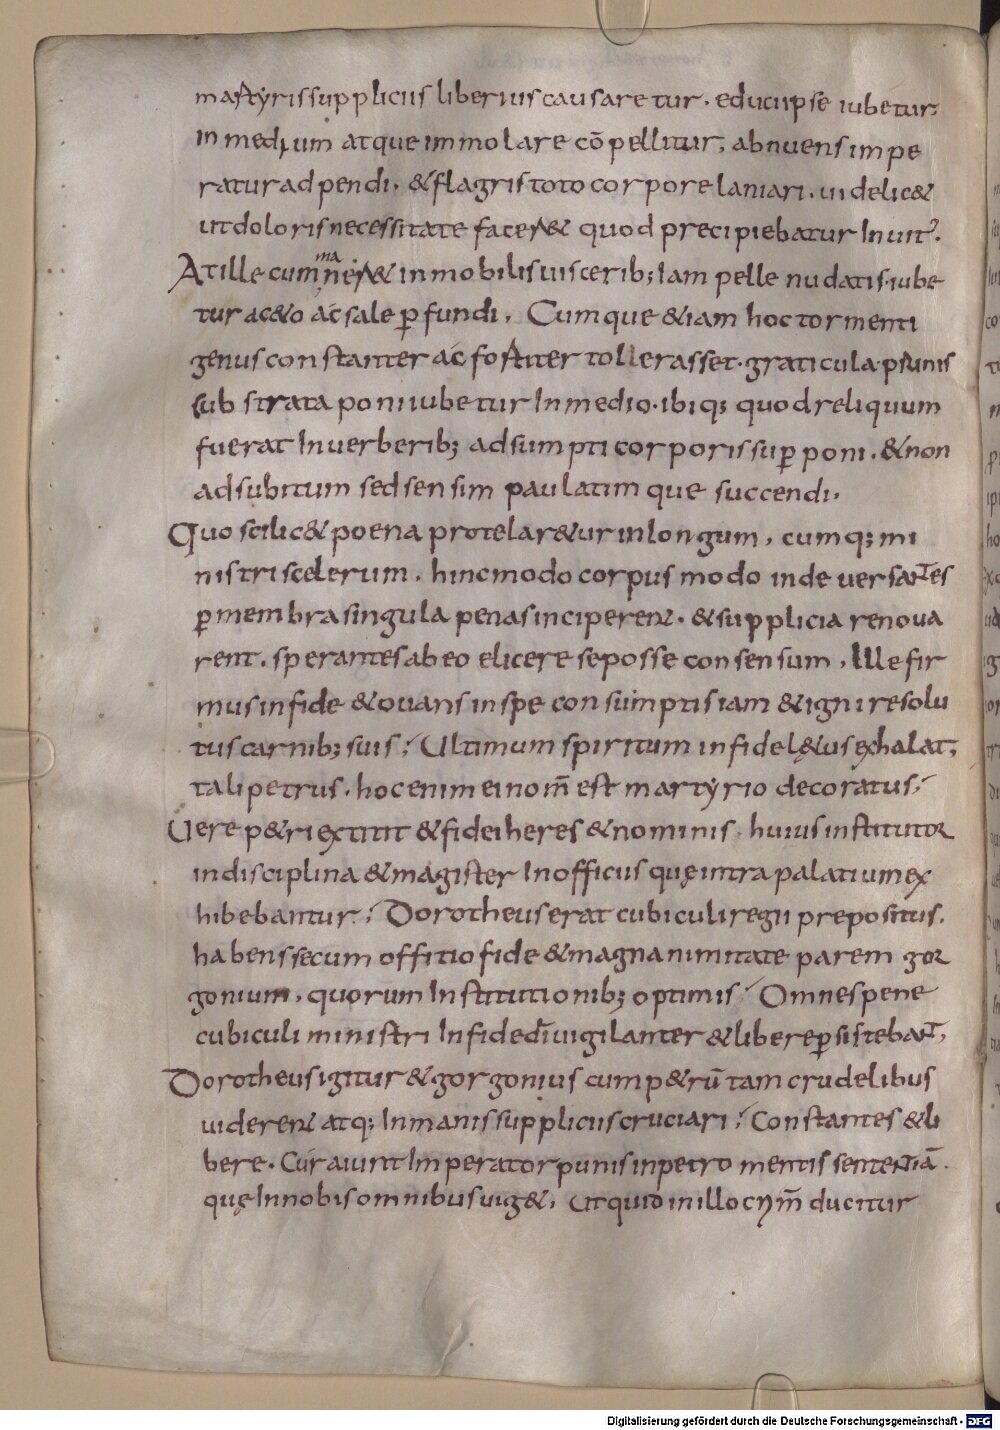 martyris supplicus liberius causaretur. educi ipse iubetur
in medium atque immolare cõpellitur, abnuens impe
ratur adpendi. & flagris toto corpore laniari. uidelic&
ut doloris necessitate facer& quod precipiebatur Inuit⁹.
At ille cum maner& inmobilis uiscerib; Iam pelle nudatis iube
tur ac&o ac sale ꝑfundi. Cumque &iam hoc tormenti
genus constanter ac fortiter tollerasset. graticula prunis
substrata poni iubetur In medio. ibiq; quod reliquum
fuerat In uerberib; adsumpti corporis suꝑponi. & non
ad subitum sed sensim paulatimque succendi.
Quo scilic& poena protelar&ur in longum, cumq; mi
nistri scelerum. hinc modo corpus modo inde uersantes
ꝑ membra singula penas inciperent. & supplicia renoua
rent. sperantes ab eo elicere se posse consensum, Ille fir
mus in fide & ouans in spe consumptis iam & igni resolu
tus carnib; suis; Ultimum spiritum in fide lętus exhalat,
tali petrus. hoc enim ei nom̄ est martyrio decoratus;
Uere p&ri extitit & fidei heres & nominis. huius institutor
in disciplina & magister In officiis quę intra palatium ex
hibebantur; Dorotheus erat cubiculi regii prepositus.
habens secum offitio fide & magnanimitate parem gor
gonium, quorum Institutionib; optimis; Omnes pene
cubiculi ministri In fide dī uigilanter & libere ꝑsistebant,
Dorotheus igitur & gorgonius cum p&rū tam crudelibus
uiderent atq; Inmanis suppliciis cruciari; Constantes & li
bere. Cur aiunt Imperator punis in petro mentis sententiā.
quę In nobis omnibus uig&, Ut quid in illo crym̄ ducitur
Digitalisierung gefördert durch die Deutsche Forschungsgemeinschaft - DFG